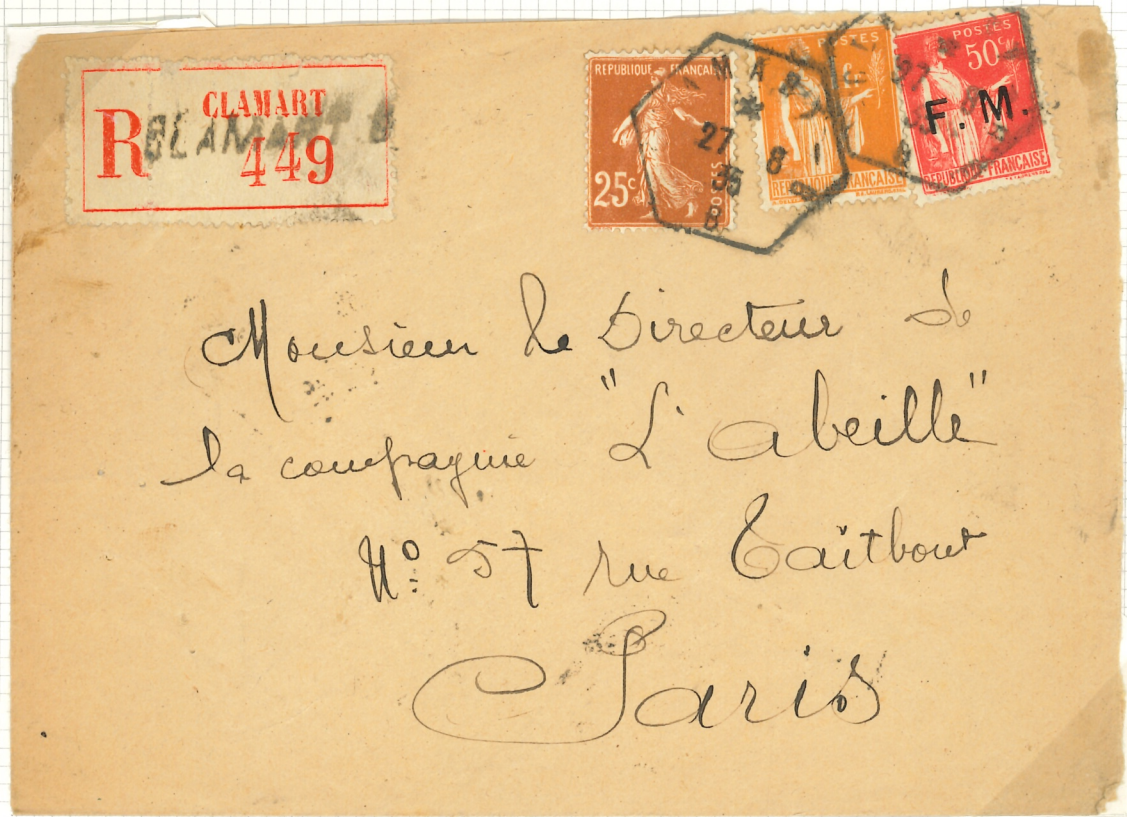 CLAMART
R 449
CLAMART B
REPUBLIQUE FRANÇAISE
25c
POSTES
POSTES
REPUBLIQUE FRANÇAISE
POSTES
50c
F. M.
REPUBLIQUE FRANÇAISE
27 8
35
B
27
Monsieur le Directeur de
la compagnie "L'abeille"
N° 57 rue Taitbout
Paris